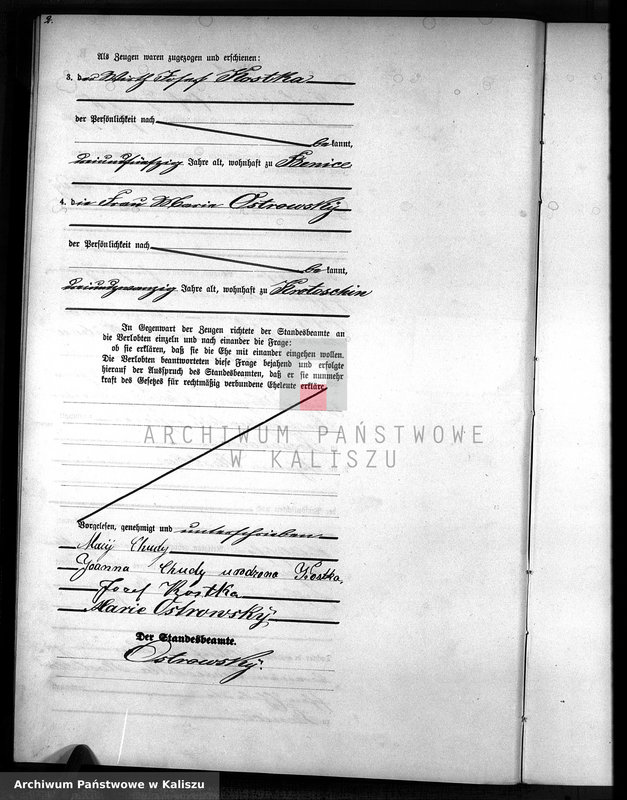 2.
Als Zeugen waren zugezogen und erschienen:
3. der Wirth Josef Kostka
der Persönlichkeit nach
be kannt,
dreiundfünfzig Jahre alt, wohnhaft zu Benice
4. die Frau Marie Ostrowský
der Persönlichkeit nach
be kannt,
dreiundzwanzig Jahre alt, wohnhaft zu Krotoschin
In Gegenwart der Zeugen richtete der Standesbeamte an
die Verlobten einzeln und nach einander die Frage:
ob sie erklären, daß sie die Ehe mit einander eingehen wollen.
Die Verlobten beantworteten diese Frage bejahend und erfolgte
hierauf der Ausspruch des Standesbeamten, daß er sie nunmehr
kraft des Gesetzes für rechtmäßig verbundene Eheleute erkläre.
ARCHIWUM PAŃSTWOWE
W KALISZU
Vorgelesen, genehmigt und unterschrieben.
Chudy
Joanna Chudy urodzona Kostka
Jozef Kostka
Marie Ostrowský
Der Standesbeamte.
Ostrowský.
Archiwum Państwowe w Kaliszu